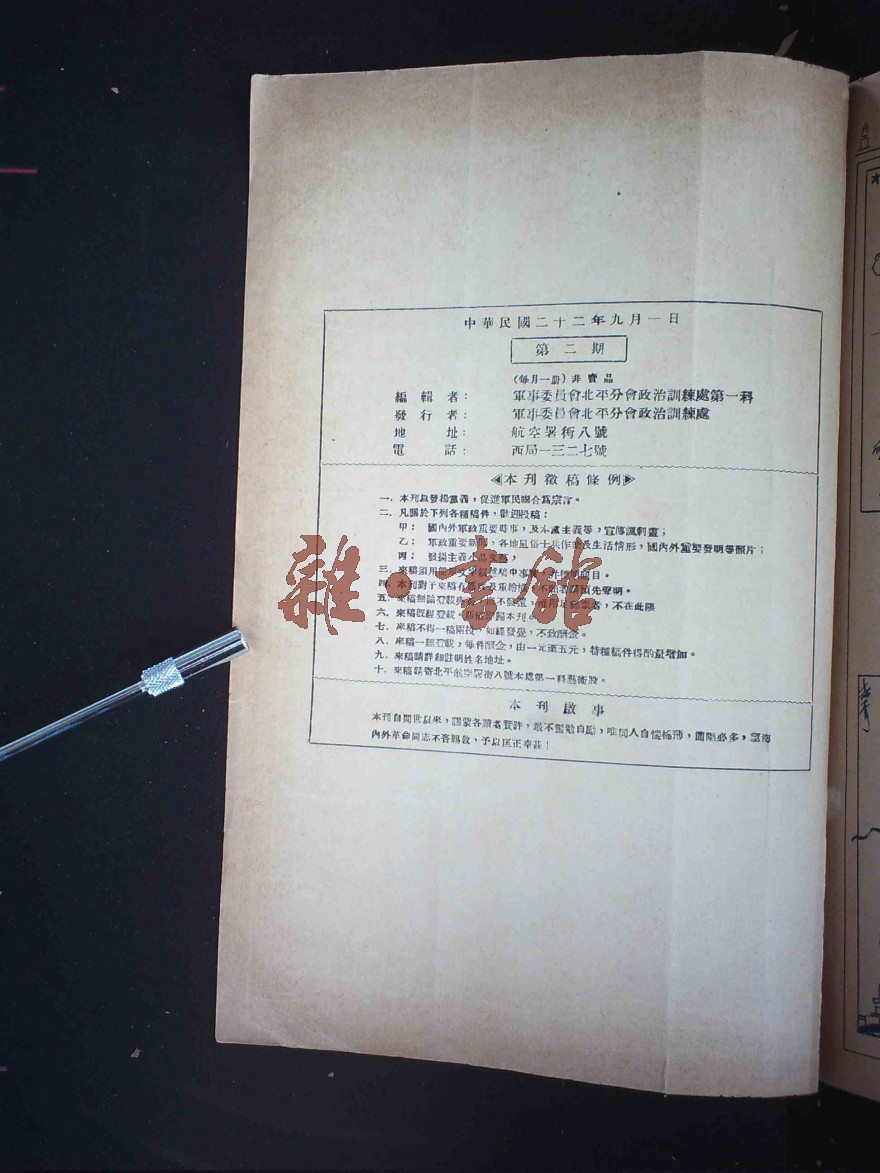 中華民國二十二年九月一日
第二期
(每月一册)非賣品
編輯者：軍事委員會北平分會政治訓練處第一科
發行者：軍事委員會北平分會政治訓練處
地址：航空署街八號
電話：西局一三二七號
◀本刊徵稿條例▶
一．本刊以發揚黨義，促進軍民聯合爲宗旨。
二．凡關於下列各種稿件，歡迎投稿：
甲：國內外軍政重要時事，及本黨主義等，宣傳諷刺畫；
乙：軍政重要新聞，各地風俗士兵作業及生活情形，國內外重要發明等照片；
丙：發揚主義小品文藝，
三．來稿須用
四．本刊對于來稿有 不願者請預先聲明。
五．來稿無論登載與 不發還， 者，不在此限
六．來稿旣經登載， 歸本刊。
七．來稿不得一稿兩投，如經發覺，不致酬金。
八．來稿一經登載，每件酬金，由一元至五元，特種稿件得酌量增加。
九．來稿請詳細註明姓名地址。
十．來稿請寄北平航空署街八號本處第一科藝術股。
本刊啟事
本刊自問世以來，謬蒙各讀者贊許，敢不奮勉自勵，唯同人自愧棉薄，闕陋必多，望海
內外革命同志不吝賜敎，予以匡正幸甚！
雜·書館